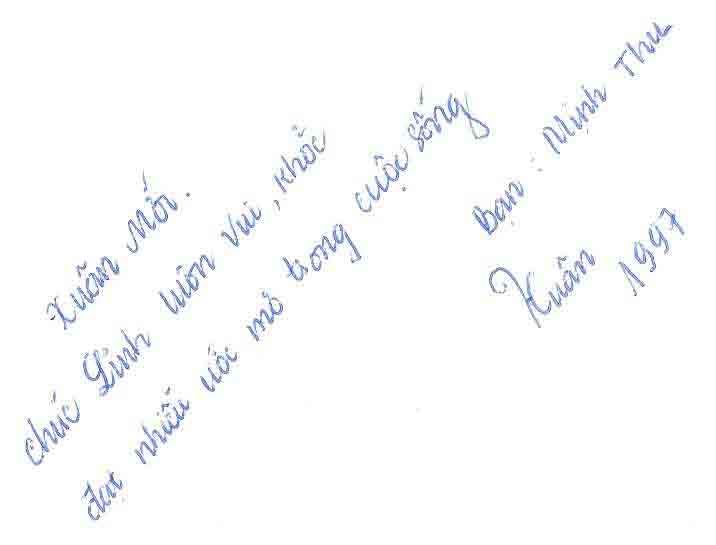 Xuân Mới.
chúc Linh luôn vui, khỏe
đạt nhiều ước mơ trong cuộc sống
Bạn: Minh Thu
Xuân 1997